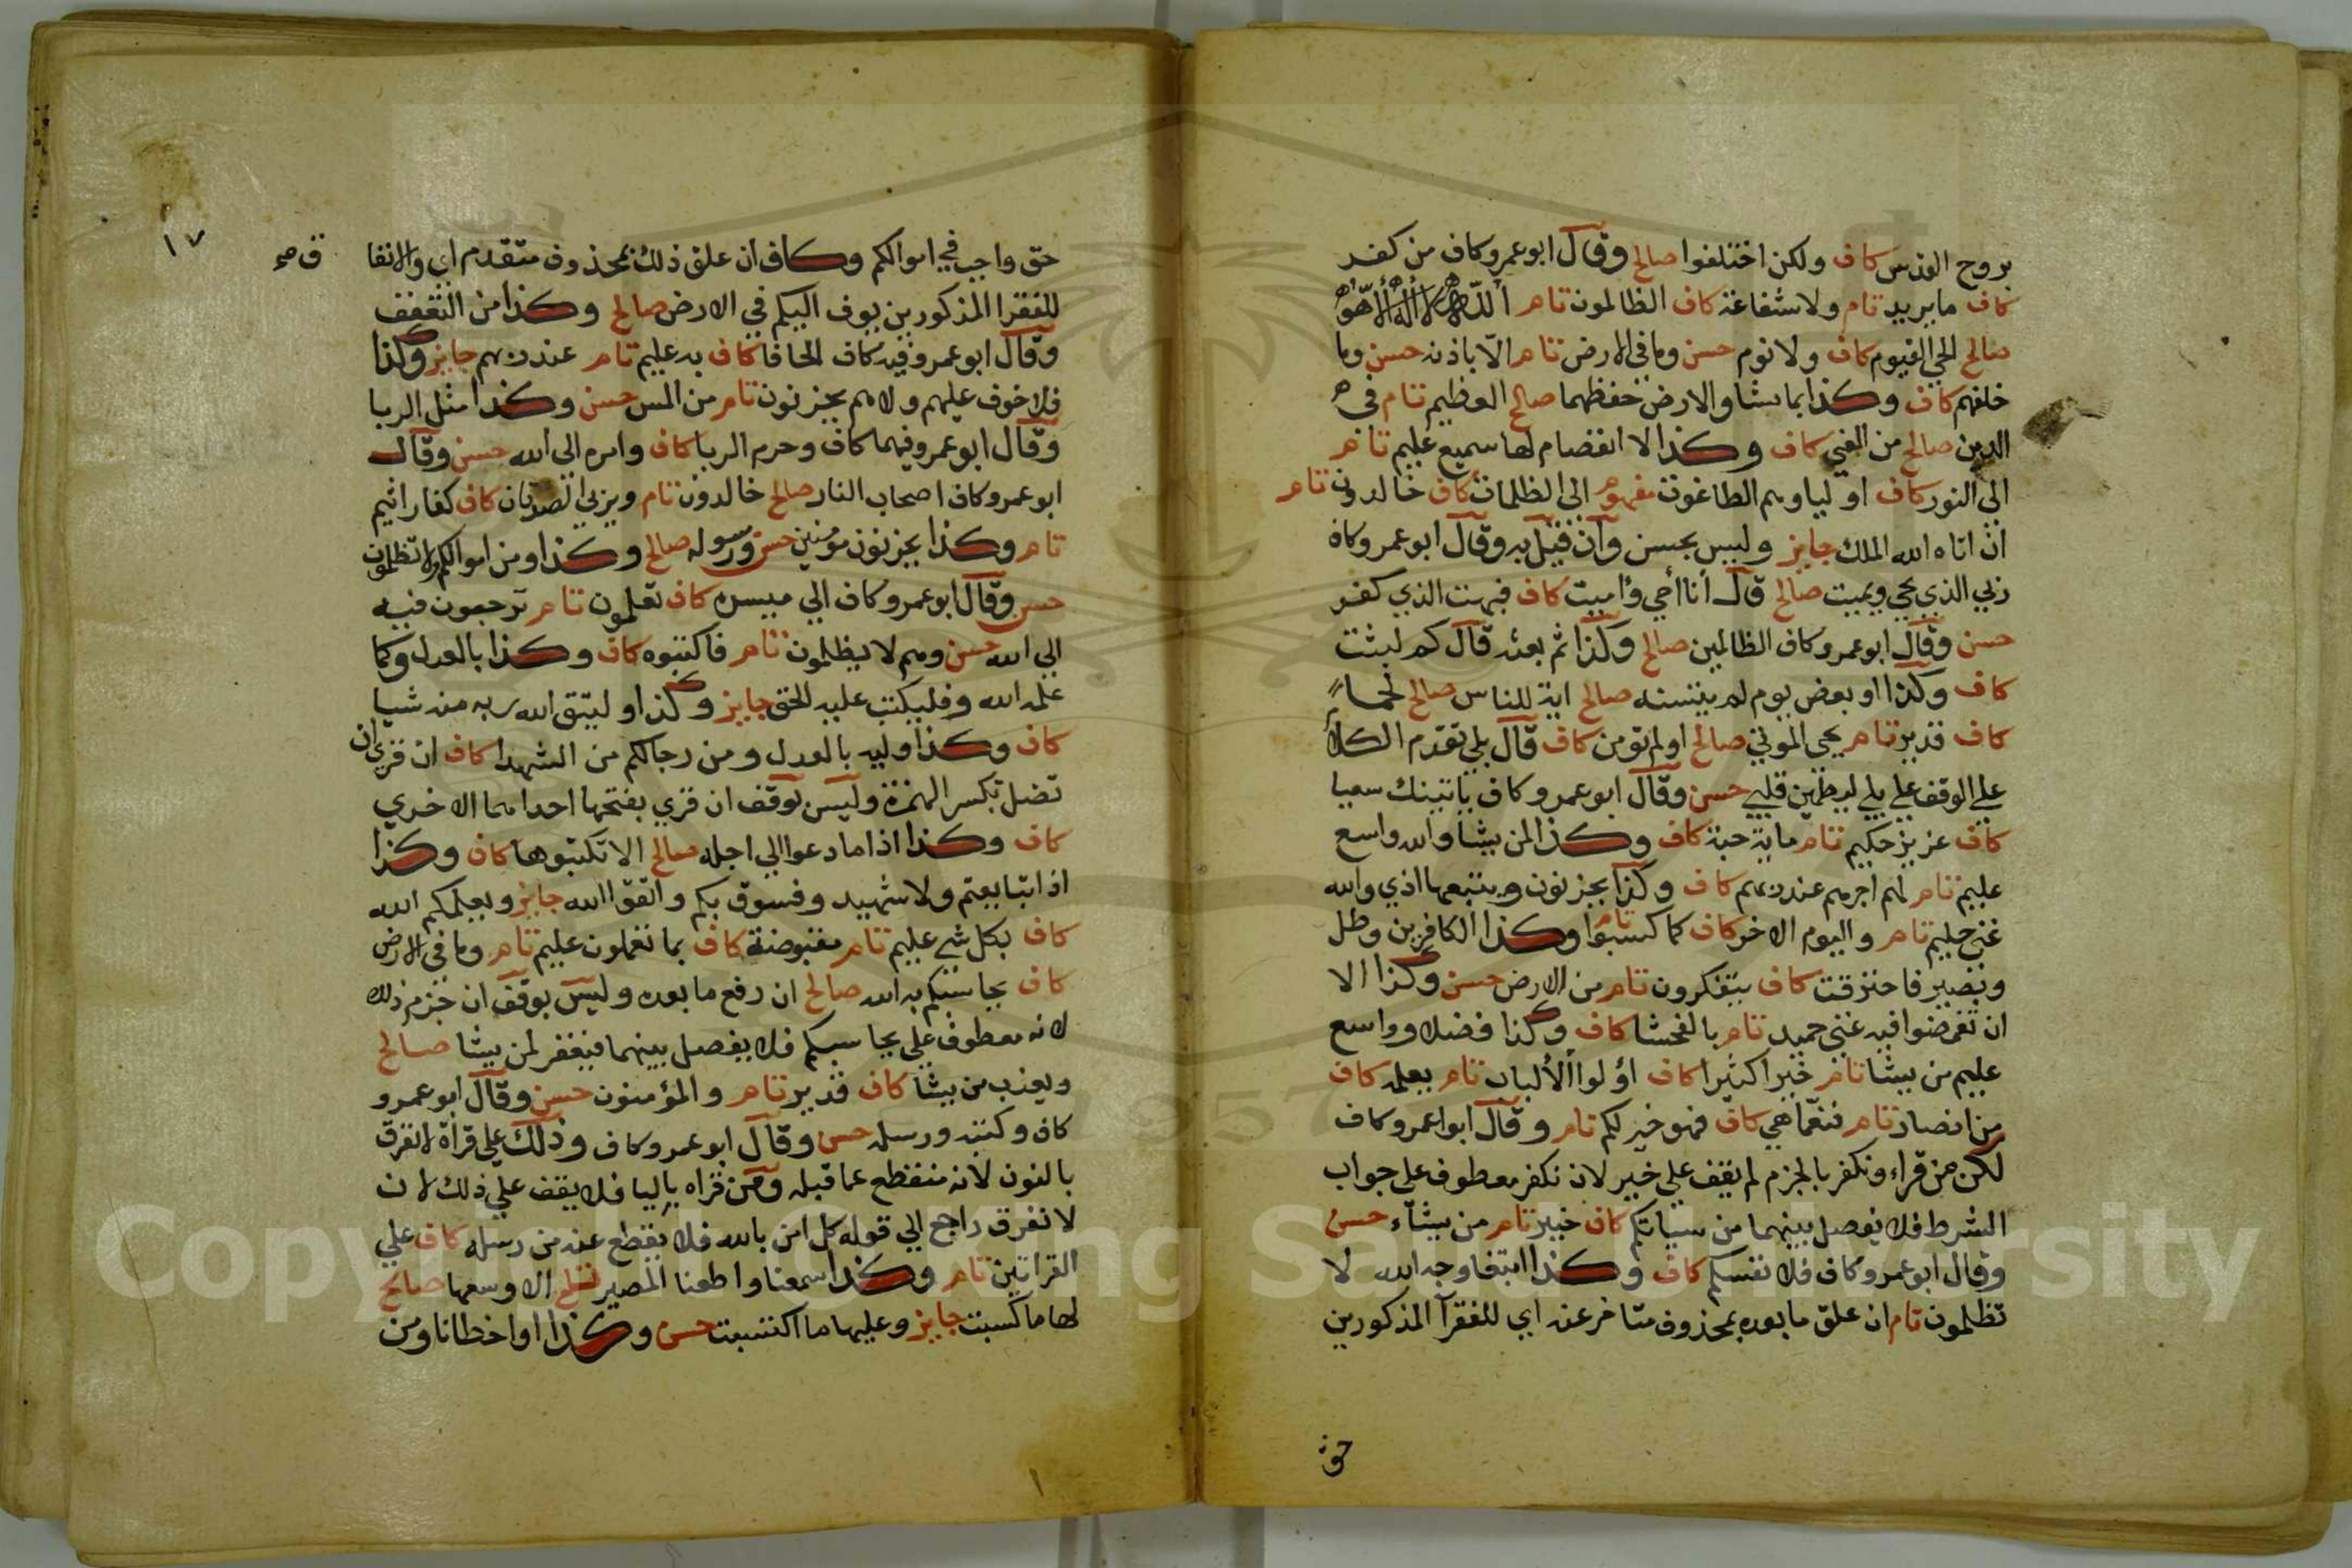 بروح القدس كاف ولكن اختلفوا صالح وقال ابو عمرو كاف من كفر
كاف ما يريد تام ولا شفاعة كاف الظالمون تام الله لا اله الا هو
صالح الحي القيوم كاف ولا نوم حسن وما في الارض تام الا باذنه حسن وما
خلفهم كاف وكذا بما شا والارض حفظهما صالح العظيم تام في
الدين صالح من الغي كاف وكذا لا انفصام لها سميع عليم تام
الي النور كاف اولياوهم الطاغوت مفهوم الي الظلمات كاف خالدون تام
ان اتاه الله الملك جايز وليس بحسن وان قيل به وقال ابو عمرو كاف
ربي الذي يحي ويميت صالح قال أنا أحي وأميت كاف فبهت الذي كفر
حسن وقال ابو عمرو كاف الظالمين صالح وكذا ثم بعثه قال كم لبثت
كاف وكذا او بعض يوم لم يتسنه صالح اية للناس صالح لحما
كاف قدير تام يحي الموتي صالح اولم تومن كاف قال بلي تقدم الكلام
علي الوقف علي بلي ليطمئن قلبي حسن وقال ابو عمرو كاف ياتينك سعيا
كاف عزيز حكيم تام ماية حبة كاف وكذا لمن يشا والله واسع
عليم تام لهم اجرهم عند ربهم كاف وكذا يحزنون ويتبعها اذي والله
غني حليم تام واليوم الاخر كاف كما كسبوا تام وكذا الكافرين وطل
وبصير فاحترقت كاف يتفكرون تام من الارض حسن وكذا الا
ان تغمضوا فيه غني حميد تام بالفحشا كاف وكذا فضلا وواسع
عليم من يشا تام خيرا كثيرا كاف أولوا الألباب تام يعلمه كاف
من انصار تام فنعما هي كاف فهو خير لكم تام وقال ابوا عمرو كاف
لكن من قراء ونكفر بالجزم لم يقف علي خير لان نكفر معطوف علي جواب
الشرط فلا يفصل بينهما من سياتكم كاف خبير تام من يشاء حسن
وقال ابو عمرو كاف فلا نفسكم كاف وكذا ابتغا وجه الله لا
تظلمون تام ان علق ما بعده بمحذوف متاخر عنه اي للفقرآ المذكورين
حق
١٧
حق واجب في اموالكم وكاف ان علق ذلك بمحذوف متقدم اي والانفا
للفقرا المذكورين يوف اليكم في الارض صالح وكذا من التعفف
وقال ابو عمرو فيه كاف الحافا كاف به عليم تام عند ربهم جايز وكذا
فلا خوف عليهم ولا هم يحزنون تام من المس حسن وكذا مثل الربا
وقال ابو عمرو فيهما كاف وحرم الربا كاف وامره الي الله حسن وقال
ابو عمرو كاف اصحاب النار صالح خالدون تام ويربي الصدقات كاف كفار اثيم
تام وكذا يحزنون مؤمنين حسن ورسوله صالح وكذا ومن اموالكم ولا تظلمون
حسن وقال ابو عمرو كاف الي ميسره كاف تعلمون تام ترجعون فيه
الي الله حسن وهم لا يظلمون تام فاكتبوه كاف وكذا بالعدل وكما
علمه الله وفليكتب عليه الحق جايز وكذا وليتق الله ربه منه شيا
كاف وكذا وليه بالعدل ومن رجالكم من الشهدا كاف ان قري ان
تضل بكسر الهمزة وليس بوقف ان قري بفتحها احداهما الاخري
كاف وكذا اذا ما دعوا الي اجله صالح الا تكتبوها كاف وكذا
اذا تبايعتم ولا شهيد وفسوق بكم واتقوا الله جايز ويعلمكم الله
كاف بكل شي عليم تام مقبوضة كاف بما تعملون عليم تام وما في الارض
كاف يحاسبكم به الله صالح ان رفع ما بعده وليس بوقف ان جزم ذلك
لانه معطوف علي يحاسبكم فلا يفصل بينهما فيغفر لمن يشا صالح
ويعذب من يشا كاف قدير تام والمؤمنون حسن وقال ابو عمرو
كاف وكتبه ورسله حسن وقال ابو عمرو كاف وذلك علي قراة لا نفرق
بالنون لانه منقطع عما قبله ومن قراه باليا فلا يقف علي ذلك لان
لا نفرق راجع الي قوله كل امن بالله فلا يقطع عنه من رسله كاف علي
القراتين تام وكذا سمعنا واطعنا المصير الا وسعها صالح
لها ما كسبت جايز وعليها ما اكتسبت حسن وكذا او اخطانا ومن